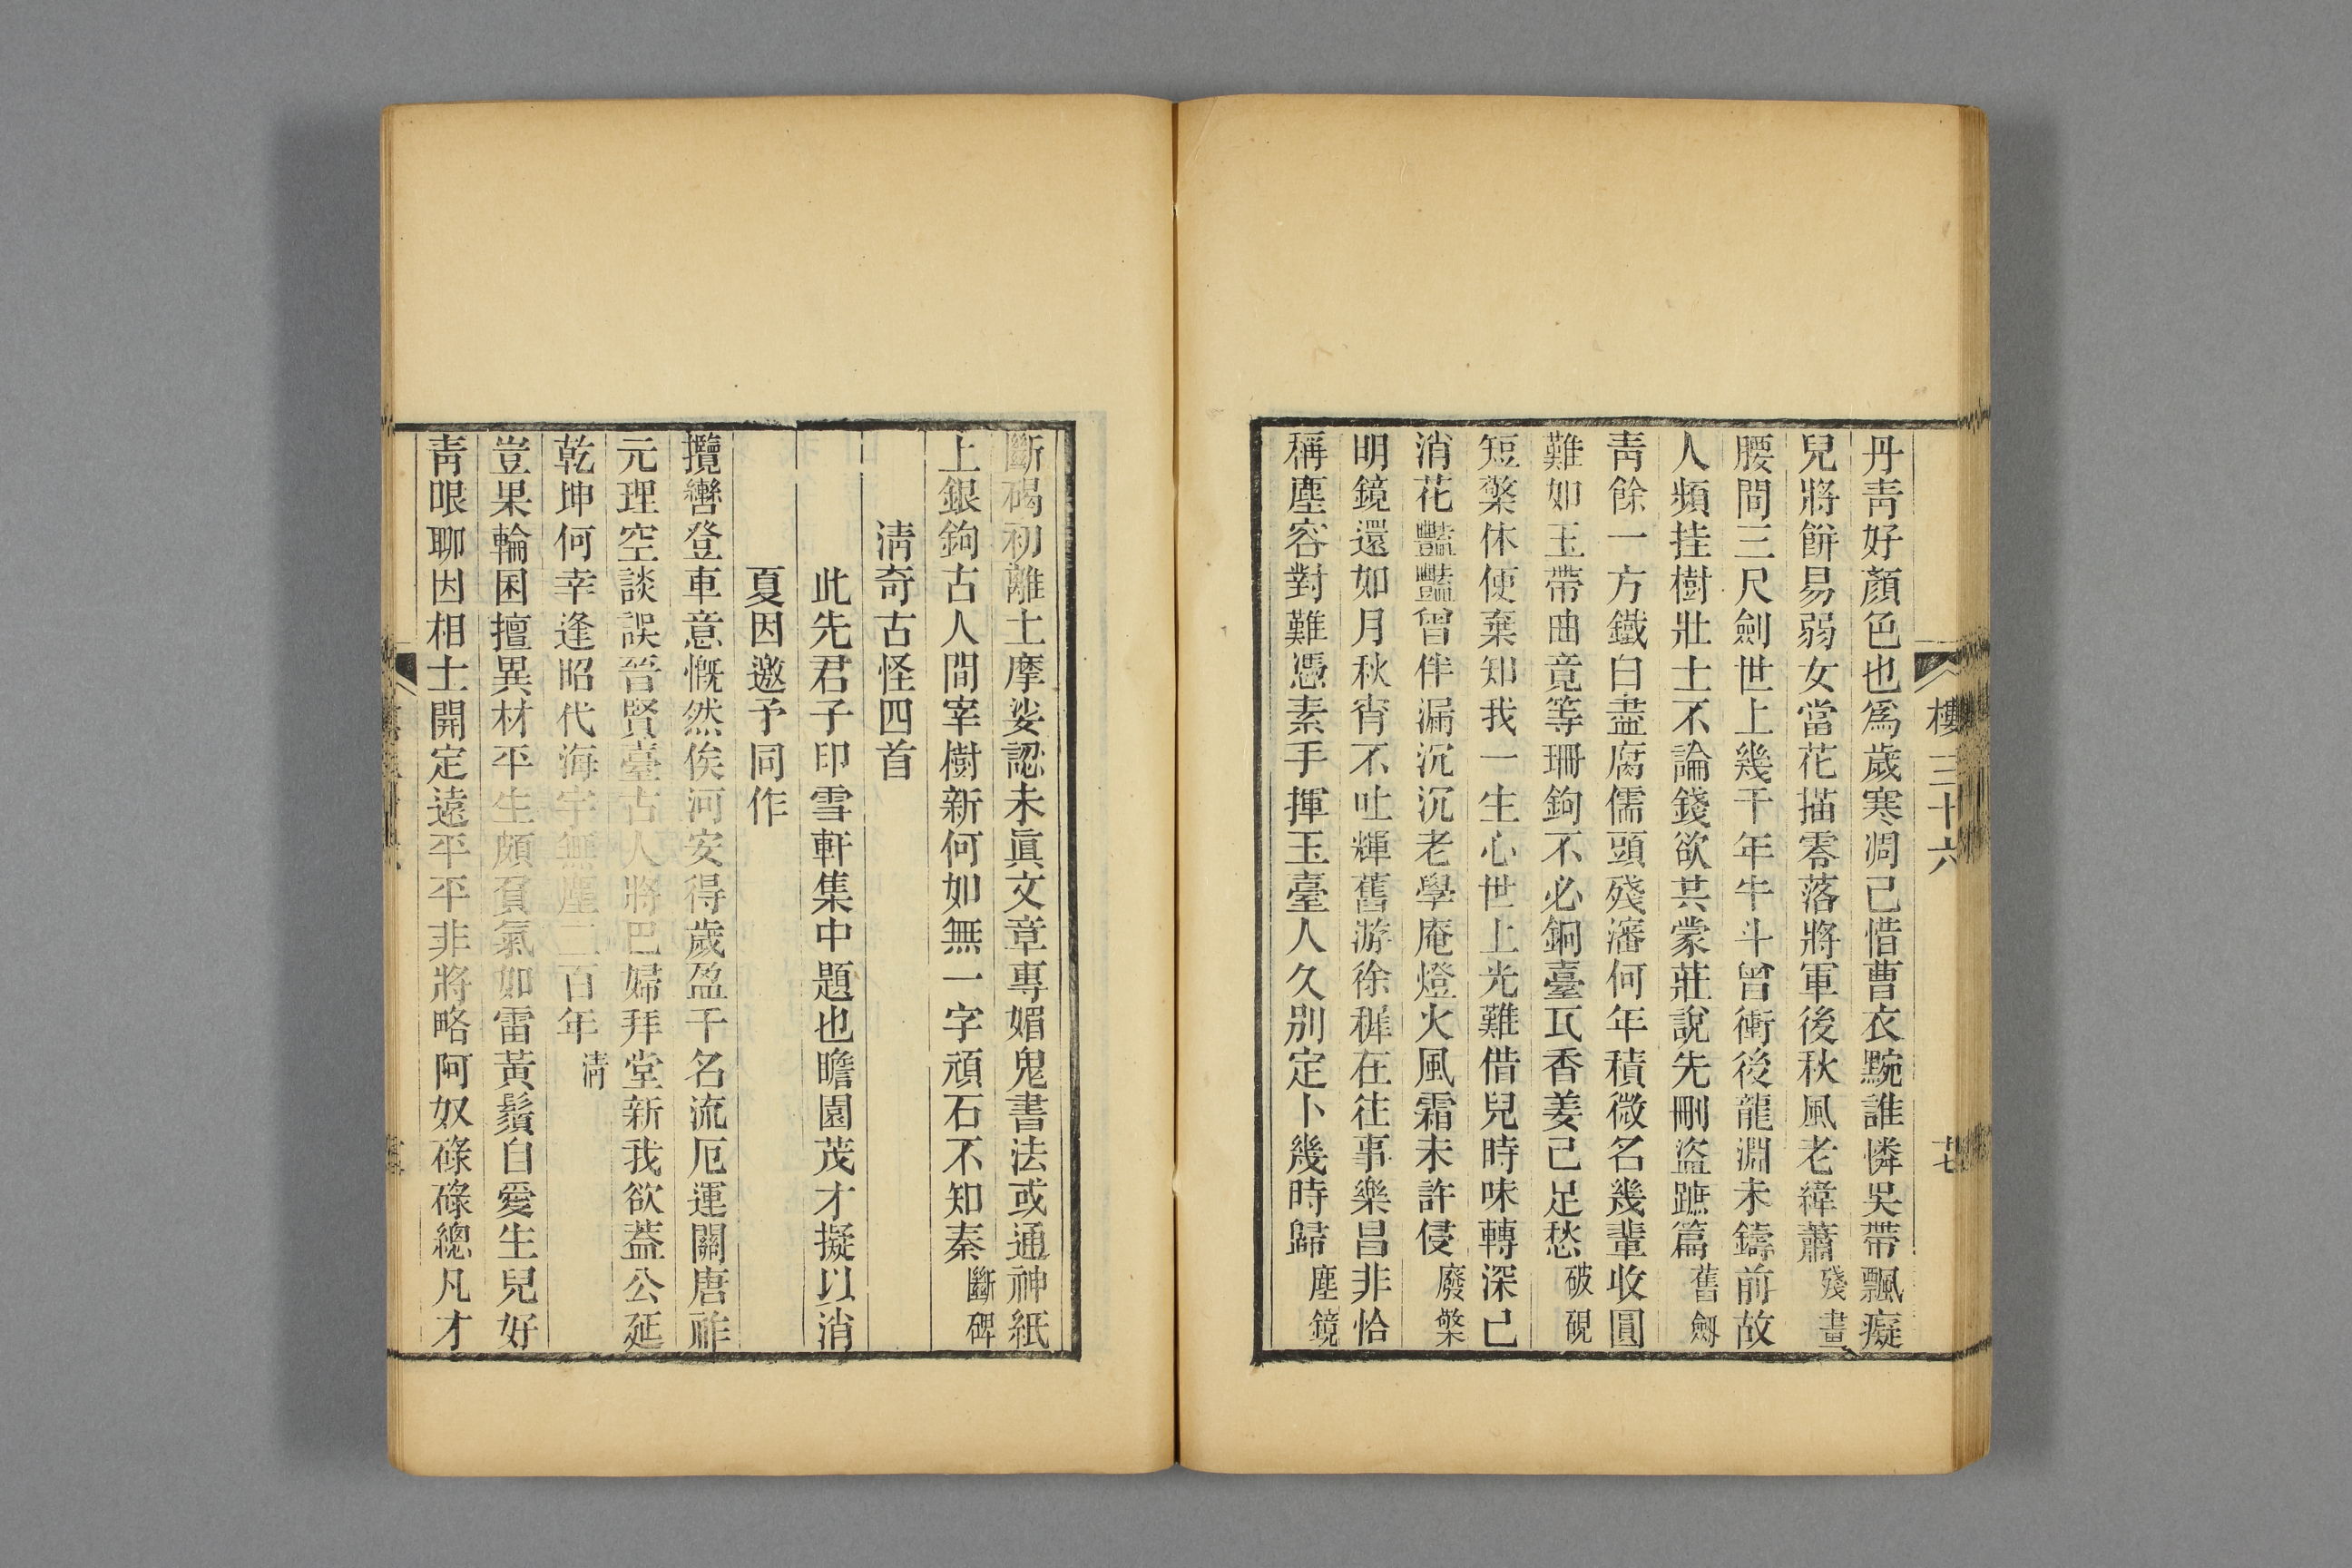 樓三十六
十七
丹靑好顏色也爲歲寒凋已惜曹衣黦誰憐吳帶飄癡
兒將餅易弱女當花描零落將軍後秋風老緯蕭殘畫
腰間三尺劍世上幾千年牛斗曾衝後龍淵未鑄前故
人頻挂樹壯士不論錢欲共蒙莊說先刪盜蹠篇舊劔
靑餘一方鐵白盡腐儒頭殘瀋何年積微名幾輩收圓
難如玉帶曲竟等珊鉤不必銅臺瓦香姜已足愁破硯
短檠休便棄知我一生心世上光難借兒時味轉深已
消花豔豔曾伴漏沉沉老學庵燈火風霜未許侵廢檠
明鏡還如月秋宵不吐輝舊游徐穉在往事樂昌非恰
稱塵容對難憑素手揮玉臺人久別定卜幾時歸塵鏡
斷碣初離土摩娑認未眞文章專媚鬼書法或通神紙
上銀鉤古人間宰樹新何如無一字頑石不知秦斷碑
淸奇古怪四首
此先君子印雪軒集中題也瞻園茂才擬以消
夏因邀予同作
攬轡登車意慨然俟河安得歲盈千名流厄運關唐祚
元理空談誤晉賢臺古人將巴婦拜堂新我欲葢公延
乾坤何幸逢昭代海宇無塵二百年淸
豈果輪囷擅異材平生頗負氣如雷黃鬚白愛生兒好
靑眼聊因相士開定遠平平非將略阿奴碌碌總凡才